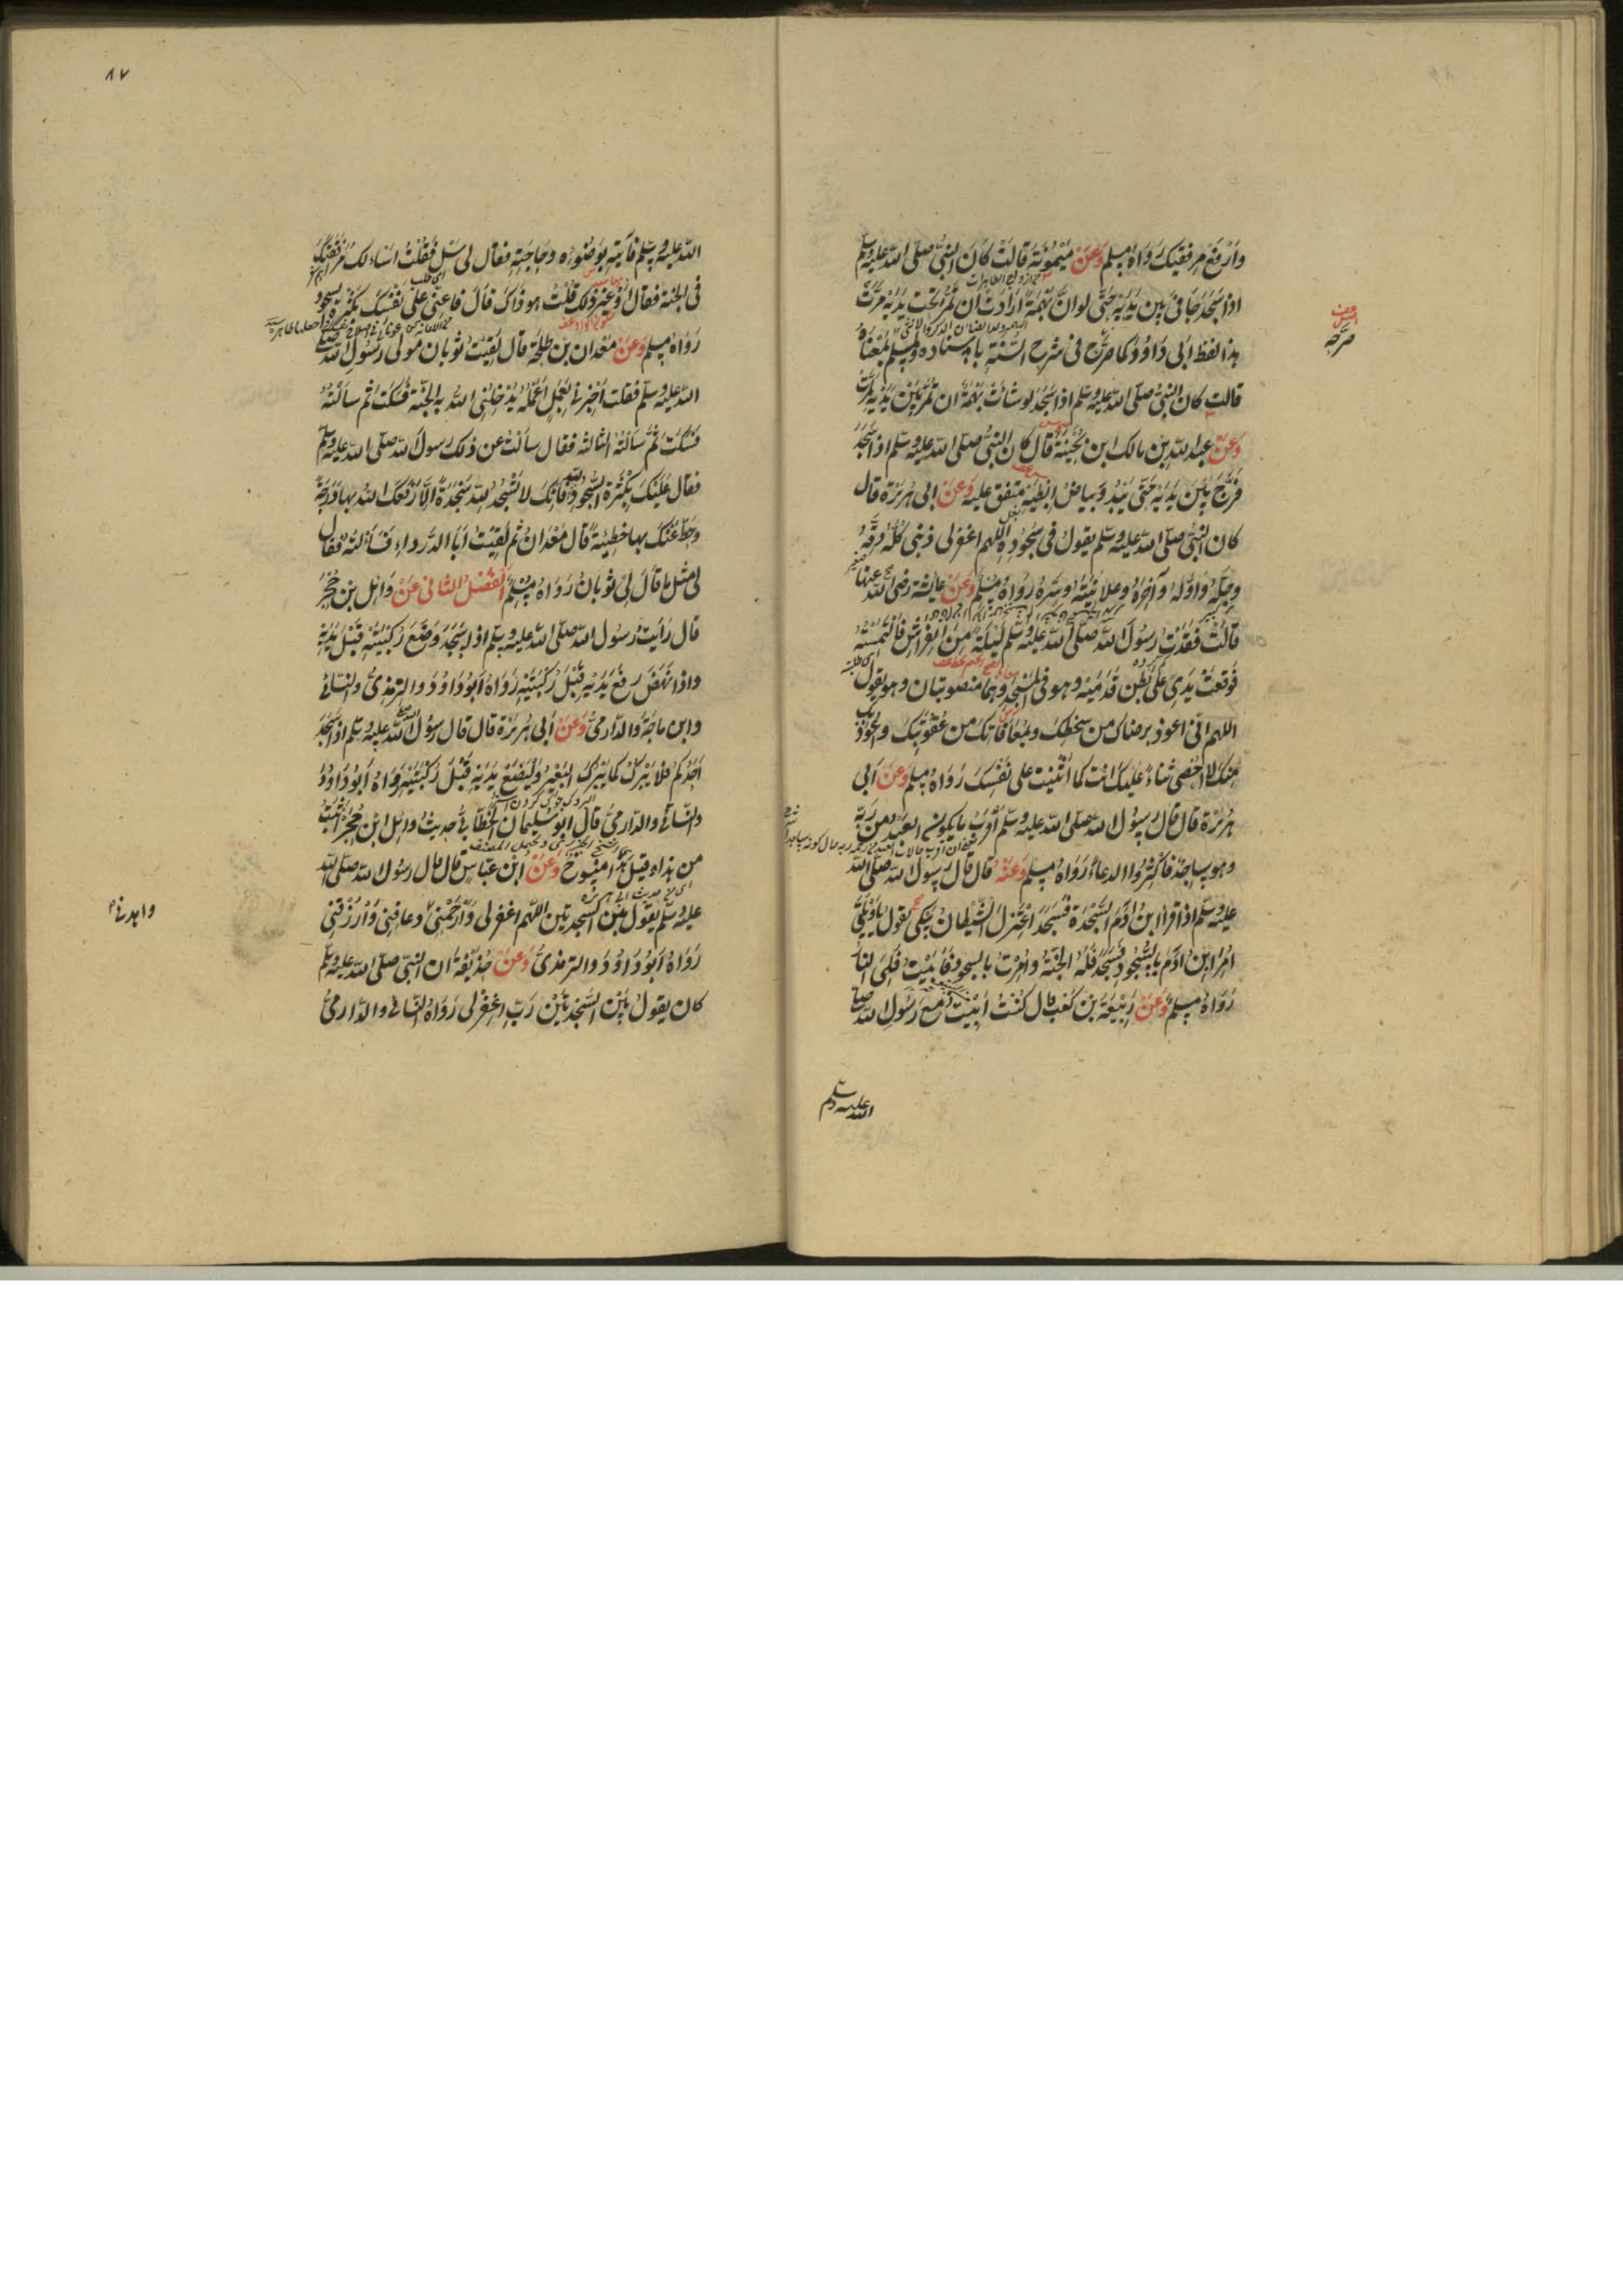 وَارْفَعْ مِرفقيك رَوَاهُ مسلم وَعَنْ مَيْمُونَة قالَتْ كَانَ النبيُّ صلّى الله عليه وسلم
اذا سَجَدَ جَافىٰ بَين يَدَيْه حَتّى لو انّ بَهْمَةً ارَادَتْ ان تَمُرَّ تحت يَدَيْه مَرَّتْ
هذا لفظ ابى دَاوُد كما صَرَّحَ فى شرح السُّنَّةِ باسناده ولمسلم بمَعْنَاهُ
قالت كان النبيُّ صلى الله عليه وسلم اذا سَجَدَ لو شاءَتْ بَهْمَةٌ ان تمُرَّ بَيْنَ يَدَيْه لَمَرَّتْ
وَعَنْ عبد الله بن مالك ابن بُحَيْنَةَ قال كان النبيُّ صلى الله عليه وسلم اذا سَجَدَ
فَرَّجَ بَيْنَ يَدَيْهِ حَتّى يَبْدُوَ بياضُ ابْطَيْهِ متفق عليه وَعَنْ ابى هُرَيْرَة قال
كان النبيُّ صلى الله عليه وسلم يقول فى سُجُودِهِ اللّهم اغفر لى ذنبى كُلَّهُ دِقَّهُ
وجِلَّهُ وَاوَّلَهُ وآخِرَهُ وعلانِيَتَهُ وسِرَّهُ رَوَاهُ مُسْلِمٌ وَعَنْ عايشة رضى الله عنها
قالَتْ فقَدْتُ رسُولَ الله صلّى الله عليه وسلم لَيْلَةً مِنَ الفِرَاشِ فَالْتَمَسْتُهُ
فَوَقَعَتْ يَدِىْ عَلىٰ بَطْن قَدَمَيْهِ وهو فى المَسْجِدِ وهُمَا منصوبتان وهو يقول
اللهم انّى اعوذ برضاك من سخطك وبمُعَافاتِكَ من عُقُوْبَتِكَ واعُوذُ بِكَ
مِنْكَ لا احْصِى ثناءً عليك انت كما اثْنَيْتَ على نَفْسِكَ رَوَاهُ مسلم وَعَنْ اَبى
هُرَيْرَة قال قال رسُولُ الله صلى الله عليه وسلم أقْرَبُ ما يكون العَبْدُ من رَبِّه
وهو ساجِدٌ فأكْثِرُوا الدعاءَ رَوَاهُ مسلم وَعَنْهُ قال قال رسُولُ الله صلى الله
عليه وسلم اذا قرأ ابنُ آدَمَ السَّجْدَة فَسَجَدَ اعْتَزَلَ الشَّيْطانُ يَبْكِى يقول يا وَيْلَتِىْ
اُمِرَ ابن آدَمَ بِالسُّجُودِ فَسَجَدَ فَلَهُ الجَنَّةُ واُمِرْتُ بالسجود فأبَيْتُ فَلِىَ النَّارُ
رَوَاهُ مسلم وَعَنْ رَبِيْعَة بْن كَعْبٍ قال كُنْتُ اَبِيْتُ مع رَسُولِ الله صلى
الله عليه وسلم
صَرَّحَ
٨٧
الله عليه وسلم فأتيته بوَضُوءِه وحَاجَتِهِ فقال لى سَلْ فَقُلْتُ اسْألُك مُرَافَقَتَكَ
فى الجنة فقال أوَ غيرَ ذلك قلتُ هو ذَاكَ قالَ فاَعِنِّى عَلىٰ نَفْسِكَ بكَثْرَةِ السجود
رَوَاهُ مسلم وَعَنْ مَعْدان بن طلحة قال لَقِيتُ ثوبان مولى رَسُول الله صلى
الله عليه وسلم فقلت أَخْبِرْنى بعَمَلٍ أعْمَلُهُ يُدْخِلُنِى الله به الجنّة فسَكَت ثم سألتُهُ
فسَكَت ثُمَّ سَألْتُهُ الثالثة فقال سألتُ عن ذلك رسولَ الله صلى الله عليه وسلم
فقال عَلَيْكَ بكَثْرَةِ السُّجُودِ لله فانّك لا تَسْجُدُ لله سَجْدَةً الّا رَفَعَكَ اللهُ بها دَرَجَةً
وحَطَّ عَنْكَ بها خطِيئَةً قال مَعْدَانُ ثُمّ لَقِيْتُ أبَا الدَّرداءِ فسَألتُهُ فقال
لى مثل ما قالَ لِىْ ثوبانُ رَوَاهُ مُسْلِمٌ الفَصْلُ الثانى عَنْ وَائِل بن حُجْرٍ
قال رَأيتُ رسُول الله صلى الله عليه وسلم اذا سَجَدَ وَضَعَ رُكبَتَيْهِ قَبْلَ يَدَيْهِ
واذا نهَضَ رفَعَ يَدَيْهِ قَبْلَ رُكْبَتَيْهِ رَوَاهُ أبُو دَاوُدَ والترمذىُّ والنسائى
وابن ماجَةَ والدارمىُّ وَعَنْ أبى هُرَيْرَة قال قال رسُولُ الله صلى الله عليه وسلم اذا سَجَدَ
اَحَدُكم فلا يَبْرُكْ كما يَبْرُكُ البَعِيْرُ ولْيَضَعْ يَدَيْهِ قَبْلَ رُكْبَتَيْهِ رَوَاهُ أبُو دَاوُدَ
والنسائى والدارمىُّ قال ابو سُليمان الخطّابىُّ حديثُ وائل ابن حُجْرٍ اثْبَتُ
من هذا وقيل هذا منسوخٌ وَعَنْ ابْن عبّاسٍ قال كان رسُول الله صلى الله
عليه وسلم يقول بَيْنَ السجدتين اللّهم اغفر لى وَارْحَمْنِى وعافِنِى وَارْزُقْنِى
رَوَاهُ أبُو دَاوُدَ والترمذىُّ وَعَنْ حُذيْفة ان النبى صلى الله عليه وسلم
كان يقولُ بَيْن السَّجْدتَيْن رَبِّ اغْفِرْ لى رَوَاهُ النسائى والدارمىُّ
واهدنى